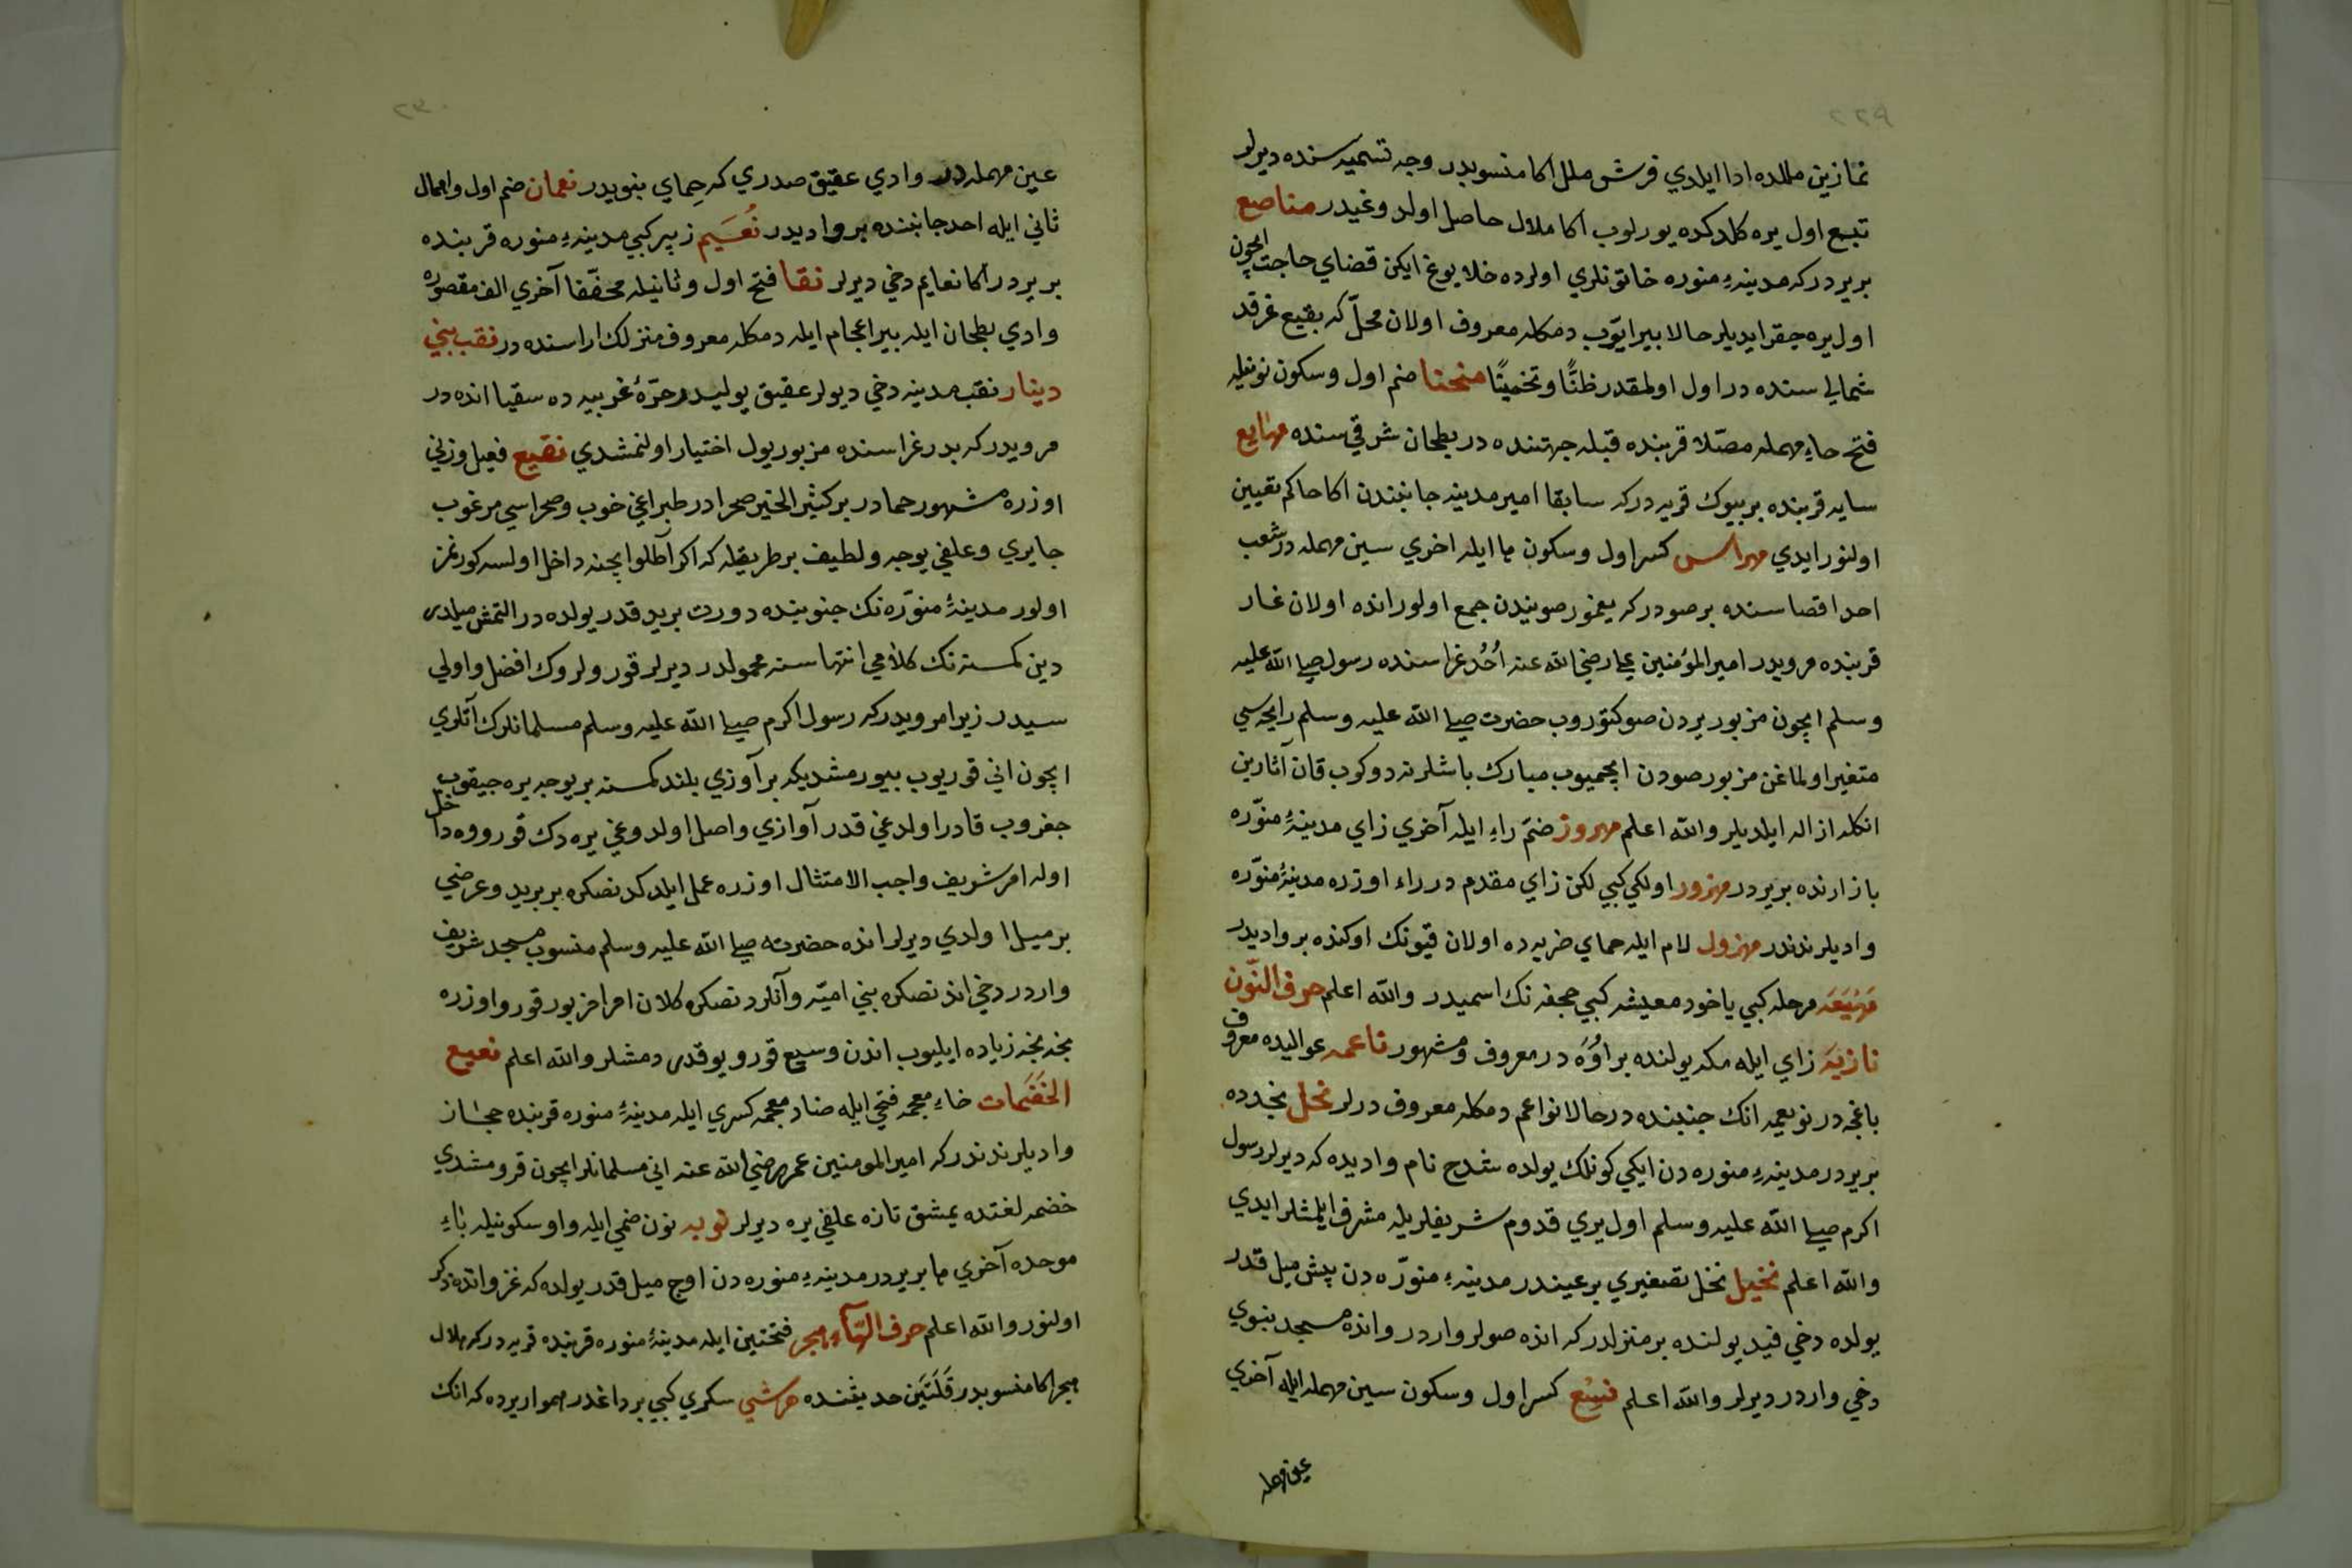 نمازين مللده ادا ايلدي فرش ملل اكا منسوبدر وجه تسميه سنده ديرلر
تبع اول يره كلدكده يورلوب اكا ملال حاصل اولدوغيدر مناصع
بر يردر كه مدينهء منوره خاتونلري اولرده خلا يوغ ايكن قضاي حاجت ايچون
اول يره چقرايديلر حالا بير ايّوب دمكله معروف اولان محلّ كه بقيع غرقد
شمالي سنده در اول اولمقدر ظنًّا وتخمينًا منحنا ضم اول وسكون نونيله
فتح حاء مهمله مصلّا قربنده قبله جهتنده در بطحان شرقي سنده مهايع
سايه قربنده بر بيوك قريه در كه سابقا امير مدينه جانبندن اكا حاكم تعيين
اولنور ايدي مهراس كسر اول وسكون ها ايله اخري سين مهمله در شعب
احد اقصاسنده بر صودر كه يغمور صويندن جمع اولور انده اولان غار
قربنده مرويدر امير المؤمنين علي رضي الله عنه اُحُد غزاسنده رسول صلي الله عليه
وسلم ايچون مزبور يردن صو كتوروب حضرت صلي الله عليه وسلم رايحه سي
متغير اولماغن مزبور صودن ايچميوب مبارك باشلرنه دوكوب قان آثارين
انكله ازاله ايلديلر والله اعلم مهروز ضمّ راء ايله آخري زاي مدينهٔ منوّره
بازارنده بر يردر مهزور اولكي كبي لكن زاي مقدم در راء اوزره مدينهٔ منوّره
واديلرندندر مهزول لام ايله حماي ضريه ده اولان قيونك اوكنده بر واديدر
مَهْيَعَه مرحله كبي ياخود معيشه كبي جحفه نك اسميدر والله اعلم حرف النّون
نازيَه زاي ايله مكه يولنده بر اوُوَه در معروف ومشهور ناعمه عواليده معروف
باغچه در نويعمه انك جنبنده در حالا نواعم دمكله معروف درلر نخل نجدده
بر يردر مدينهء منوره دن ايكي كونلك يولده شدخ نام واديده كه ديرلر رسول
اكرم صلي الله عليه وسلم اول يري قدوم شريفلريله مشرف ايلمشلر ايدي
والله اعلم نخيل نخل تصغيري بر عيندر مدينهء منوّره دن بش ميل قدر
يولده دخي فيد يولنده بر منزلدر كه انده صولر واردر وانده مسجد نبوي
دخي واردر ديرلر والله اعلم نسع كسر اول وسكون سين مهمله ايله آخري
عين مهمله
عين مهمله در وادي عقيق صدري كه حِماي نبويدر نعمان ضم اول واهمال
ثاني ايله احد جانبنده بر واديدر نُعَيم زبير كبي مدينهء منوره قربنده
بر يردر اكا نعايم دخي ديرلر نقا فتح اول وثانيله مخفّفا آخري الف مقصوره
وادي بطحان ايله بير اعجام ايله دمكله معروف منزلك اراسنده در نقب بني
دينار نقب مدينه دخي ديرلر عقيق يوليدر حرّهٔ غربيه ده سقيا انده در
مرويدر كه بدر غزاسنده مزبور يول اختيار اولنمشدي نقيع فعيل وزني
اوزره مشهور حمادر بر كثير الخير صحرادر طبراغي خوب وصحراسي مرغوب
چايري وعلفي يوجه ولطيف بر طريقله كه اكر آطلو ايچنه داخل اولسه كورنمز
اولور مدينهٔ منوّره نك جنوبنده دورت بريد قدر يولده در التمش ميلدر
دين كمسنه نك كلامي انتهاسنه محمولدر ديرلر قورولرك افضل واولي
سيدر زيرا مرويدر كه رسول اكرم صلي الله عليه وسلم مسلمانلرك آتلري
ايچون اني قوريوب بيورمشديكه بر آوازي بلند كمسنه بر يوجه يره چيقوب
چغروب قادر اولدغي قدر آوازي واصل اولدوغي يره دك قورووه داخل
اوله امر شريف واجب الامتثال اوزره عمل ايلدكدنصكره بر بريد وعرضي
بر ميل اولدي ديرلر انده حضرته صلي الله عليه وسلم منسوب مسجد شريف
واردر دخي اندنصكره بني اميّه وآنلردنصكره كلان امرا مزبور قورو اوزره
نجه نجه زياده ايليوب اندن وسيع قورو يوقدر دمشلر والله اعلم نعيع
الخَضَمات خاء معجمه فتحي ايله ضاد معجمه كسري ايله مدينهٔ منوره قربنده حجاز
واديلرندندر كه امير المومنين عمر رضي الله عنه اني مسلمانلر ايچون قورومشدي
خضمه لغتده يمشق تازه علفي يره ديرلر نوبه نون ضمي ايله واو سكونيله باء
موحده آخري ها بر يردر مدينهء منوره دن اوچ ميل قدر يولده كه غزواتده ذكر
اولنور والله اعلم حرف الهآء هجر فتحتين ايله مدينهٔ منوره قربنده قريه در كه هلال
هجر اكا منسوبدر قَلَتَين حديثنده هرشي سكري كبي بر داغدر هموار يرده كه انك